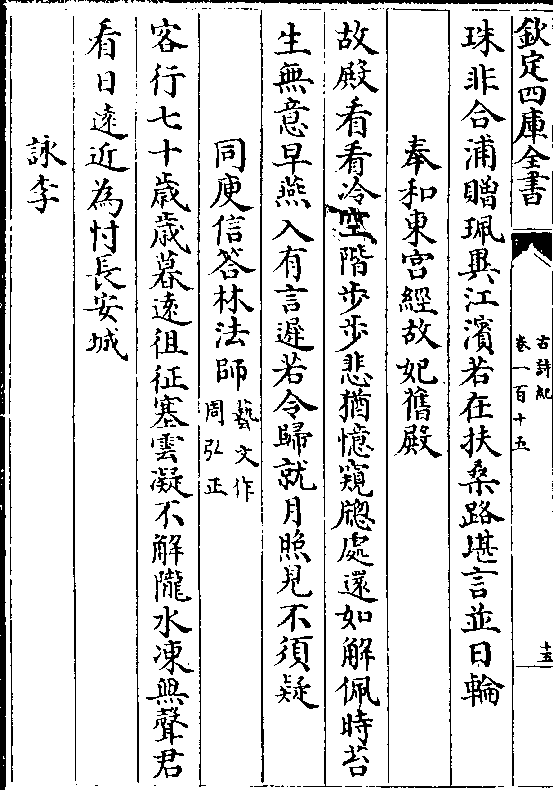 欽定四庫全書
古詩紀
卷一百十五
十五
珠非合浦贈珮異江濱若在扶桑路堪言並日輪
奉和東宮經故妃舊殿
故殿看看冷空階步步悲猶憶窺牕處還如解佩時苔
生無意早燕入有言遲若令歸就月照見不須疑
同庾信答林法師
藝文作
周弘正
客行七十歳歳暮遠徂征塞雲凝不解隴水凍無聲君
看日遠近為忖長安城
詠李